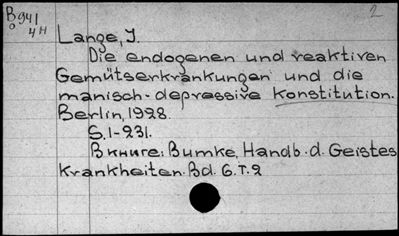 B941
o 4H
2
Lange, J.
Die endogenen und reaktiven
Gemütserkrankungen und die
manisch-depressive Konstitution.
Berlin, 1928.
S.1-231.
В книге: Bumke, Handb. d. Geistes
Krankheiten. Bd. 6. T. 2